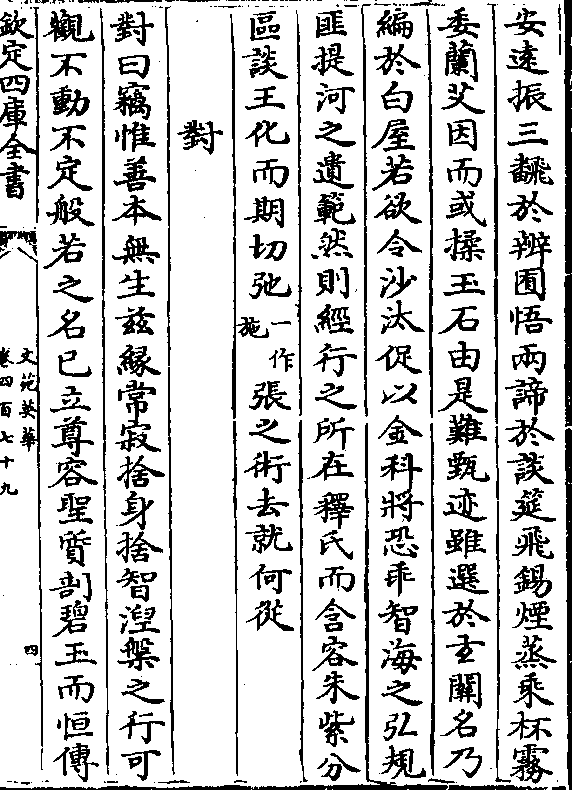 安遠振三翻於辨囿悟兩諦於談筵飛錫煙蒸乘杯霧
委蘭艾因而或揉玉石由是難甄迹雖選於玄關名乃
編於白屋若欲令沙汰促以金科將恐乖智海之弘規
匪提河之遺範然則經行之所在釋氏而含容朱紫分
區談王化而期切弛一作施張之術去就何從
對
對曰竊惟善本無生兹緣常寂捨身捨智湼槃之行可
觀不動不定般若之名已立尊容聖質剖碧玉而恒傳
欽定四庫全書
文苑英華
卷四百七十九
四